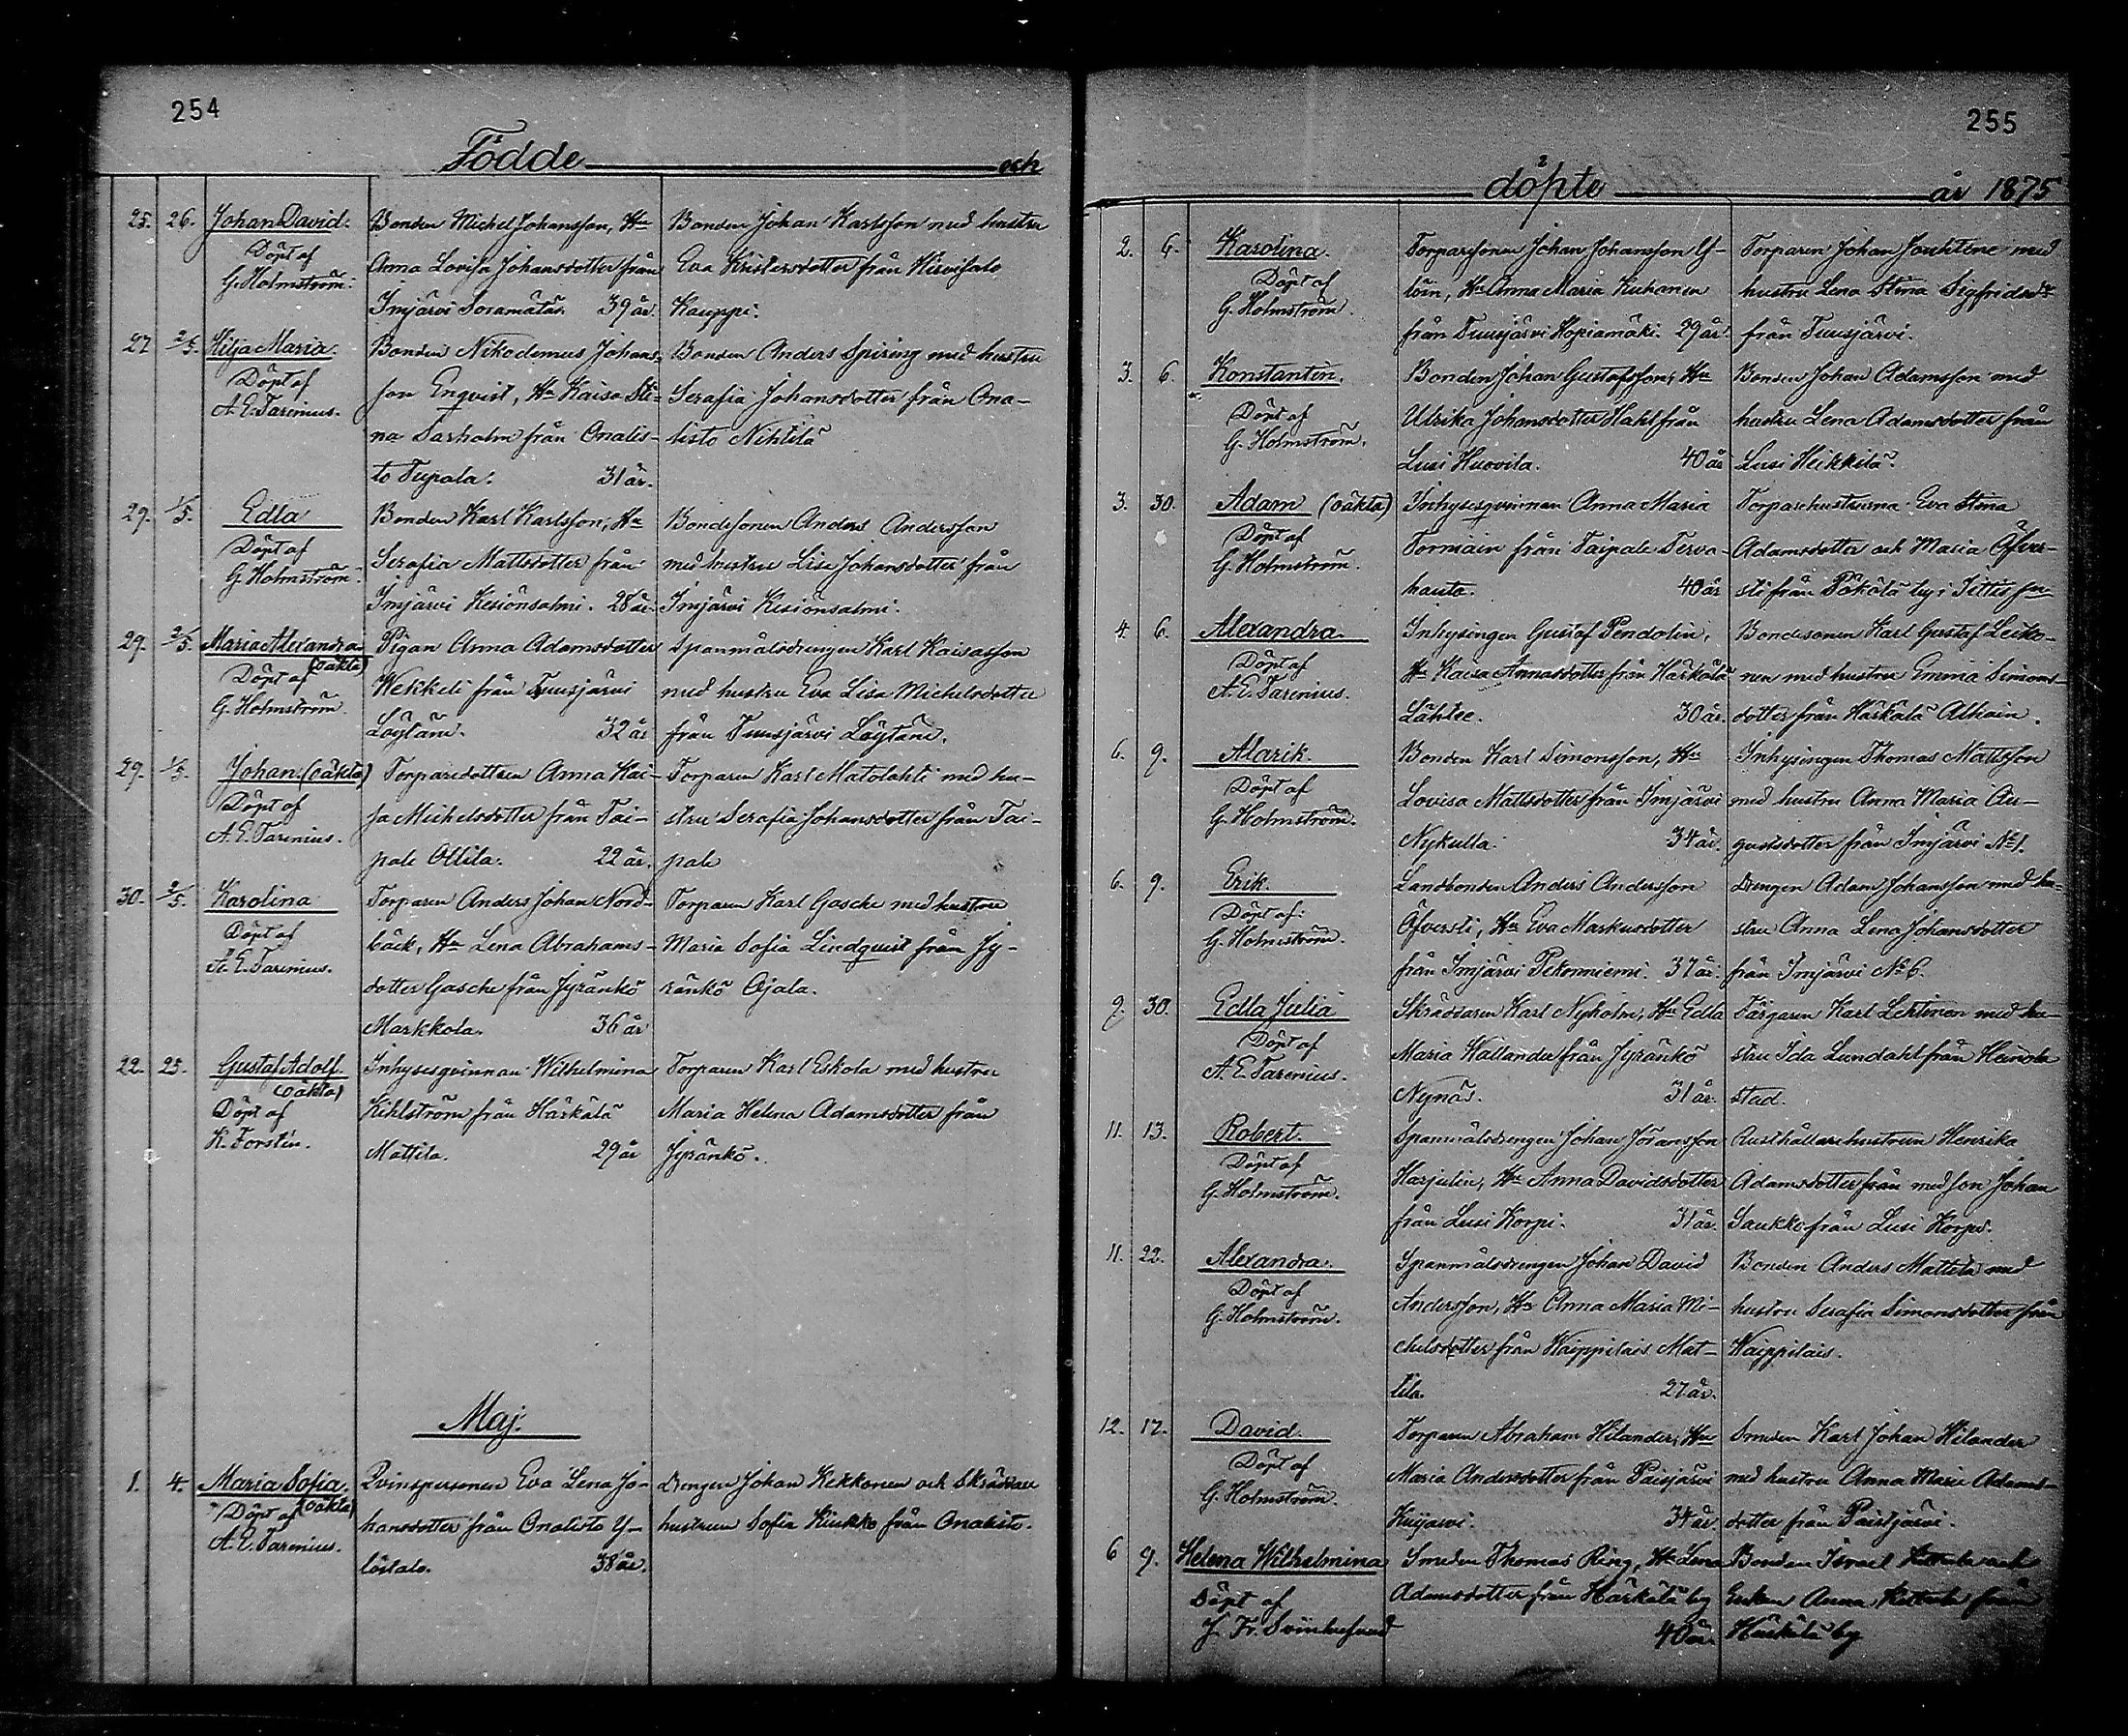 254
Födde och
25. 26. Johan David. Bonden Michel Johansson, Hu Bonden Johan Karlsson med hustru
Döpt af Anna Lovisa Johansdotter från Eva Kristersdotter från Hirvisalo
G. Holmström. Imjärvi Soramäläs. 39 år. Kauppi.
27 2/5. Hilja Maria. Bonden Nikodemus Johans- Bonden Anders Spiring med hustru
Döpt af son Enqvist, Hu Kaisa Sti- Serafia Johansdotter från Ona-
A. E. Tarenius. na Sarholm från Onalis- listo Nihtilä
to Tupala. 31 år.
29. 1/5. Edla Bonden Karl Karlsson, Hu Bondesonen Anders Andersson
Döpt af Serafia Mattsdotter från med hustru Lisa Johansdotter från
G. Holmström. Imjärvi Kesiönsalmi. 28 år. Imjärvi Kesiönsalmi.
29. 2/5. Maria Alexandra Pigan Anna Adamsdotter Spanmålsdrengen Karl Kaisasson
(oäkta)
Döpt af Wekkeli från Tuusjärvi med hustru Eva Lisa Michelsdotter
G. Holmström. Löytäne. 32 år från Tuusjärvi Löytäne.
29. 1/5. Johan. (oäkta) Torparedottren Anna Kai- Torparen Karl Matolahti med hu-
Döpt af sa Michelsdotter från Tai- stru Serafia Johansdotter från Tai-
A. E. Tarenius. pale Ollila. 22 år. pale
30. 2/5. Karolina Torparen Anders Johan Nord- Torparen Karl Gasche med hustru
Döpt af bäck, Hu Lena Abrahams- Maria Sofia Lindqvist från Jy-
A. E. Tarenius. dotter Gasche från Jyränkö ränkö Ojala.
Markkola. 36 år
22. 25. Gustaf Adolf. Inhysesqvinnan Wilhelmina Torparen Karl Eskola med hustru
(oäkta)
Döpt af Kihlström från Härkälä Maria Helena Adamsdotter från
K. Forstén. Mattila. 29 år Jyränkö.
Maj.
1. 4. Maria Sofia. Qvinspersonen Eva Lena Jo- Drengen Johan Kekkonen och Skräddare
Döpt af (oäkta) hansdotter från Onalisto Y- hustrun Sofia Kiukko från Onalisto.
A. E. Tarenius. löstalo. 38 år.
255
döpte år 1875
2. 6. Karolina. Torparsonen Johan Johansson
Döpt af Hu Anna Maria Kuhanen hustru Lena Stina Sigfridsdr
G. Holmström. från Tuusjärvi Hopiamäki. 29 år. från Tuusjärvi.
3. 6. Konstantin. Bonden Johan Gustafsson, Hu Bonden Johan Adamsson med
Döpt af Ulrika Johansdotter Hahl från hustru Lena Adamsdotter från
G. Holmström. Lusi Huovila. 40 år Lusi Heikkilä.
3. 30. Adam (oäkta) Inhysesqvinnan Anna Maria Torparehustrurna Eva Stina
Döpt af Tormäin från Taipale Terva- Adamsdotter och Maria Öfver-
G. Holmström. hauta. 40 år sti från
4. 6. Alexandra. Inhysingen Gustaf Pendolin, Bondesonen Karl Gustaf Leiko-
Döpt af Hu Kaisa Annasdotter från Härkälä nen med hustru Emma Simons-
A. E. Tarenius. Lähtee. 30 år. dotter från Härkälä Alhain.
6. 9. Alarik. Bonden Karl Simonsson, Hu Inhysingen Thomas Mattsson
Döpt af Lovisa Mattsdotter från Imjärvi med hustru Anna Maria Au-
G. Holmström. Nykulla. 34 år. gustsdotter från Imjärvi No 1.
6. 9. Erik. Landbonden Anders Andersson Drengen Adam Johansson med hu-
Döpt af: Öfversti, Hu Eva Markusdotter stru Anna Lena Johansdotter
G. Holmström. från Imjärvi Pekonniemi. 37 år. från Imjärvi No 6.
9. 30. Edla Julia Skräddaren Karl Nyholm, Hu Edla Färgaren Karl Lehtinen med hu-
Döpt af Maria Wallander från Jyränkö stru Ida Lundahl från Heinola
A. E. Tarenius. Nynäs. 31 år. stad.
11. 13. Robert. Spanmålsdrengen Johan Göransson Rusthållarehustrun Henrika
Döpt af Harjulin, Hu Anna Davidsdotter Adamsdotter från med son Johan
G. Holmström. från Lusi Korpi. 31 år. Saukko från Lusi Korpi.
11. 22. Alexandra. Spanmålsdrengen Johan David Bonden Anders Mattila med
Döpt af Andersson, Hu Anna Maria Mi- hustru Serafia Simonsdotter från
G. Holmström. chelsdotter från Waippilais Mat- Waippilais.
tila. 27 år.
12. 17. David. Torparen Abraham Hilander, Hu Smeden Karl Johan Hilander
Döpt af Maria Andersdotter från Paisjärvi med hustru Anna Maria Adams-
G. Holmström. 34 år. dotter från Paistjärvi.
6 9. Helena Wilhelmina Smeden Thomas Ring, Hu Lena Bonden Israel och
Döpt af Adamsdotter från Härkälä by Enkan Anna från
J. Fr. Svinhufvud 40 år. Härkälä by